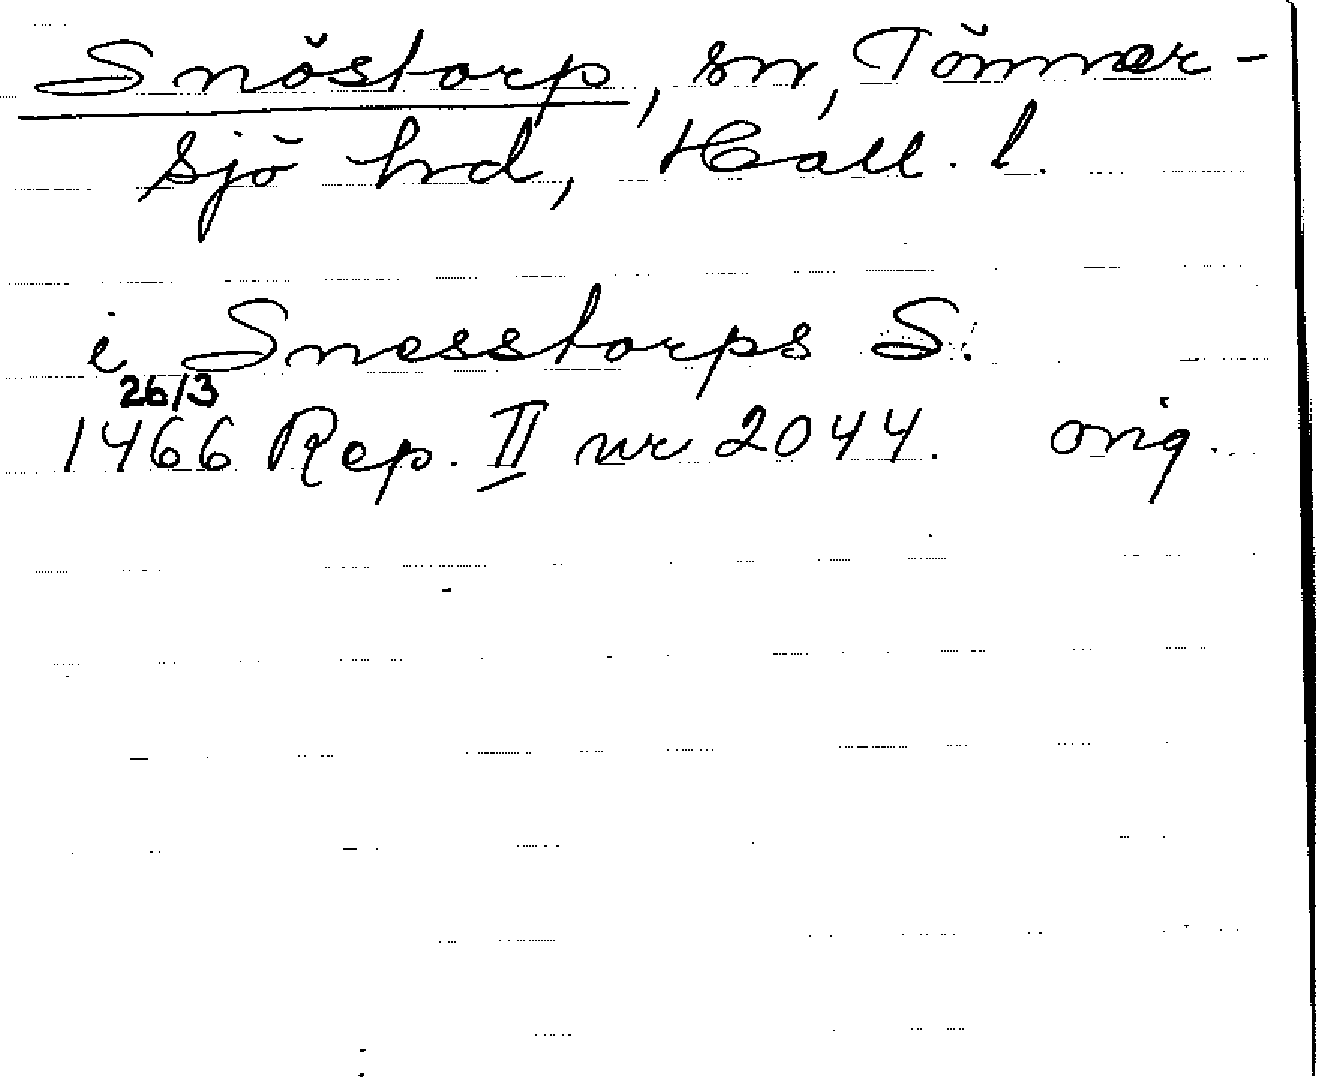 Snöstorp, sn, Tönner-
sjö hrd, Hall. l.
i Snesstorps S:
26/3
1466 Rep. II nr 2044. orig.